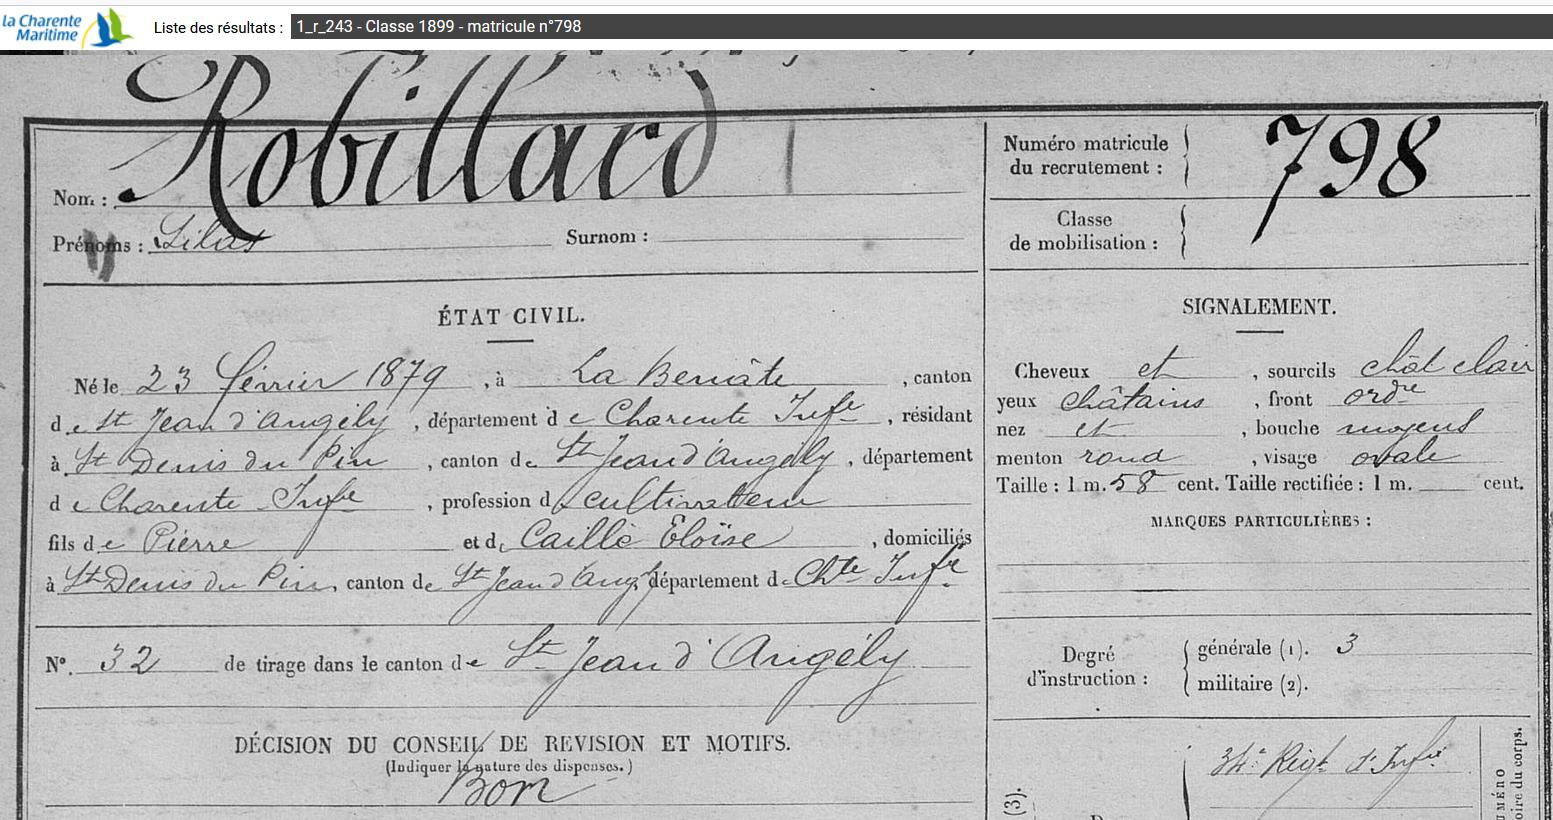 la Charente
Maritime
Liste des résultats : 1_r_243 - Classe 1899 - matricule n°798
Nom : Robillard
Prénoms : Lilas Surnom :
Numéro matricule
du recrutement : 798
Classe
de mobilisation :
ÉTAT CIVIL.
Né le 23 février 1879, à La Benâte, canton
de St Jean d'Angély, département de Charente Infre, résidant
à St Denis du Pin, canton de St Jean d'Angély, département
de Charente Infre, profession d cultivateur
fils de Pierre et de Caillé Eloïse, domiciliés
à St Denis du Pin, canton de St Jean d'Ang, département de Chte Infre
N°. 32 de tirage dans le canton de St Jean d'Angély
DÉCISION DU CONSEIL DE REVISION ET MOTIFS.
(Indiquer la nature des dispenses.)
Bon
SIGNALEMENT.
Cheveux et, sourcils chât clair
yeux châtains, front ordre
nez et, bouche moyens
menton rond, visage ovale
Taille : 1 m. 58 cent. Taille rectifiée : 1 m. cent.
MARQUES PARTICULIÈRES :
Degré
d'instruction :
générale (1). 3
militaire (2).
34e Rigt d'Infie
(3).